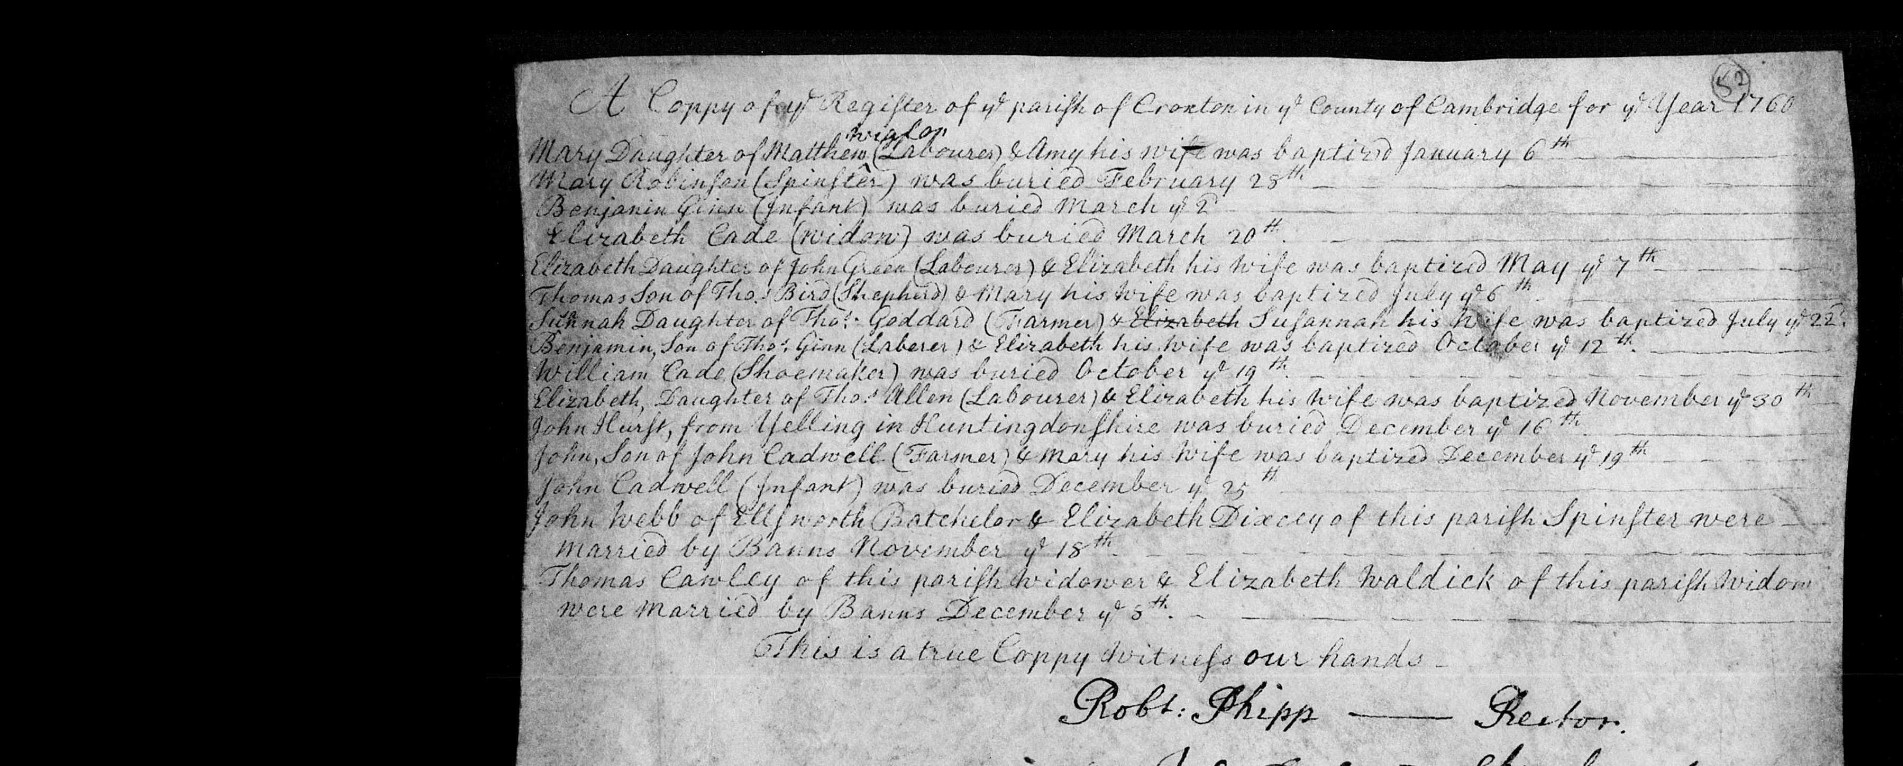 52
A Coppy of yᵉ Register of yᵉ parish of Croxton in yᵉ County of Cambridge for yᵉ Year 1760
Wigtop
Mary Daughter of Matthew (Labourer) & Amy his wife was baptized January 6th
Mary Robinson (Spinster) was buried February 28th
Benjamin Ginn (Infant) was buried March yᵉ 2d
Elizabeth Cade (widow) was buried March 20th
Elizabeth Daughter of John Green (Labourer) & Elizabeth his Wife was baptized May yᵉ 7th
Thomas Son of Thos Bird (Shepherd) & Mary his Wife was baptized July yᵉ 6th
Daughter of Thos: Goddard (Farmer) & Elizabeth Susannah his Wife was baptized July yᵉ 22d.
Benjamin, Son of Thos. Ginn (Laberer) & Elizabeth his Wife was baptized October yᵉ 12th.
William Cade (Shoemaker) was buried October yᵉ 19th.
Elizabeth, Daughter of Thos Allen (Labourer) & Elizabeth his Wife was baptized November yᵉ 30th
John Hurst, from Yelling in Huntingdonshire was buried December yᵉ 16th
John, Son of John Cadwell (Farmer) & Mary his Wife was baptized December yᵉ 19th
John Cadwell (Infant) was buried December yᵉ 25th
John Webb of Ellsworth Batchelor & Elizabeth Dixcey of this parish Spinster were
married by Banns November yᵉ 18th
Thomas Cawley of this parish widower & Elizabeth Waldick of this parish Widow
were married by Banns December yᵉ 5th.
This is a true Coppy Witness our hands
Robt: Phipp Rector.